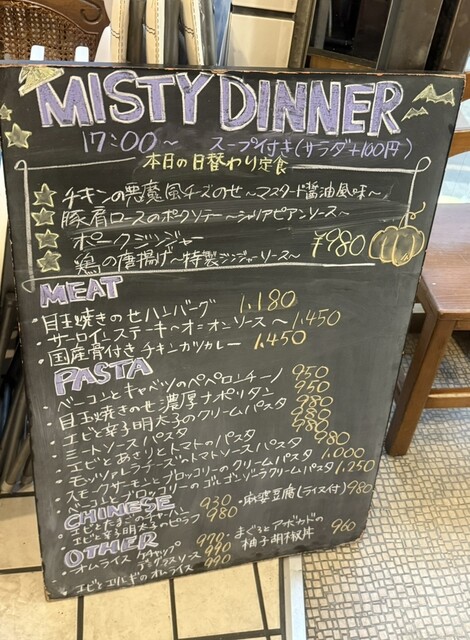 MISTY DINNER
17:00〜 スープ付き(サラダ+100円)
本日の日替わり定食
チキンの悪魔風チーズのせ〜マスタード醤油風味〜
豚肩ロースのポークソテー〜シャリアピアンソース〜
ポークジンジャー
鶏の唐揚げ〜特製ジンジャーソース〜 ¥980
MEAT
・目玉焼きのせハンバーグ 1,180
・サーロインステーキ〜オニオンソース〜 1,450
・国産骨付きチキンカツカレー 1,450
PASTA
・ベーコンとキャベツのペペロンチーノ 950
・目玉焼きのせ濃厚ナポリタン 950
・エビと辛子明太子のクリームパスタ 980
・ミートソースパスタ 980
・エビとあさりとトマトのパスタ 980
・モッツァレラチーズのトマトソースパスタ 980
・スモークサーモンとブロッコリーのクリームパスタ 1,000
・ベーコンとブロッコリーのゴルゴンゾーラクリームパスタ 1,250
CHINESE
・エビとたまごの 930
・エビと辛子明太子のピラフ 980
・麻婆豆腐(ライス付) 980
OTHER
・オムライス ケチャップ 970
デミグラスソース 990
・エビとエリンギのオムライス 990
・まぐろとアボカドの柚子胡椒丼 960